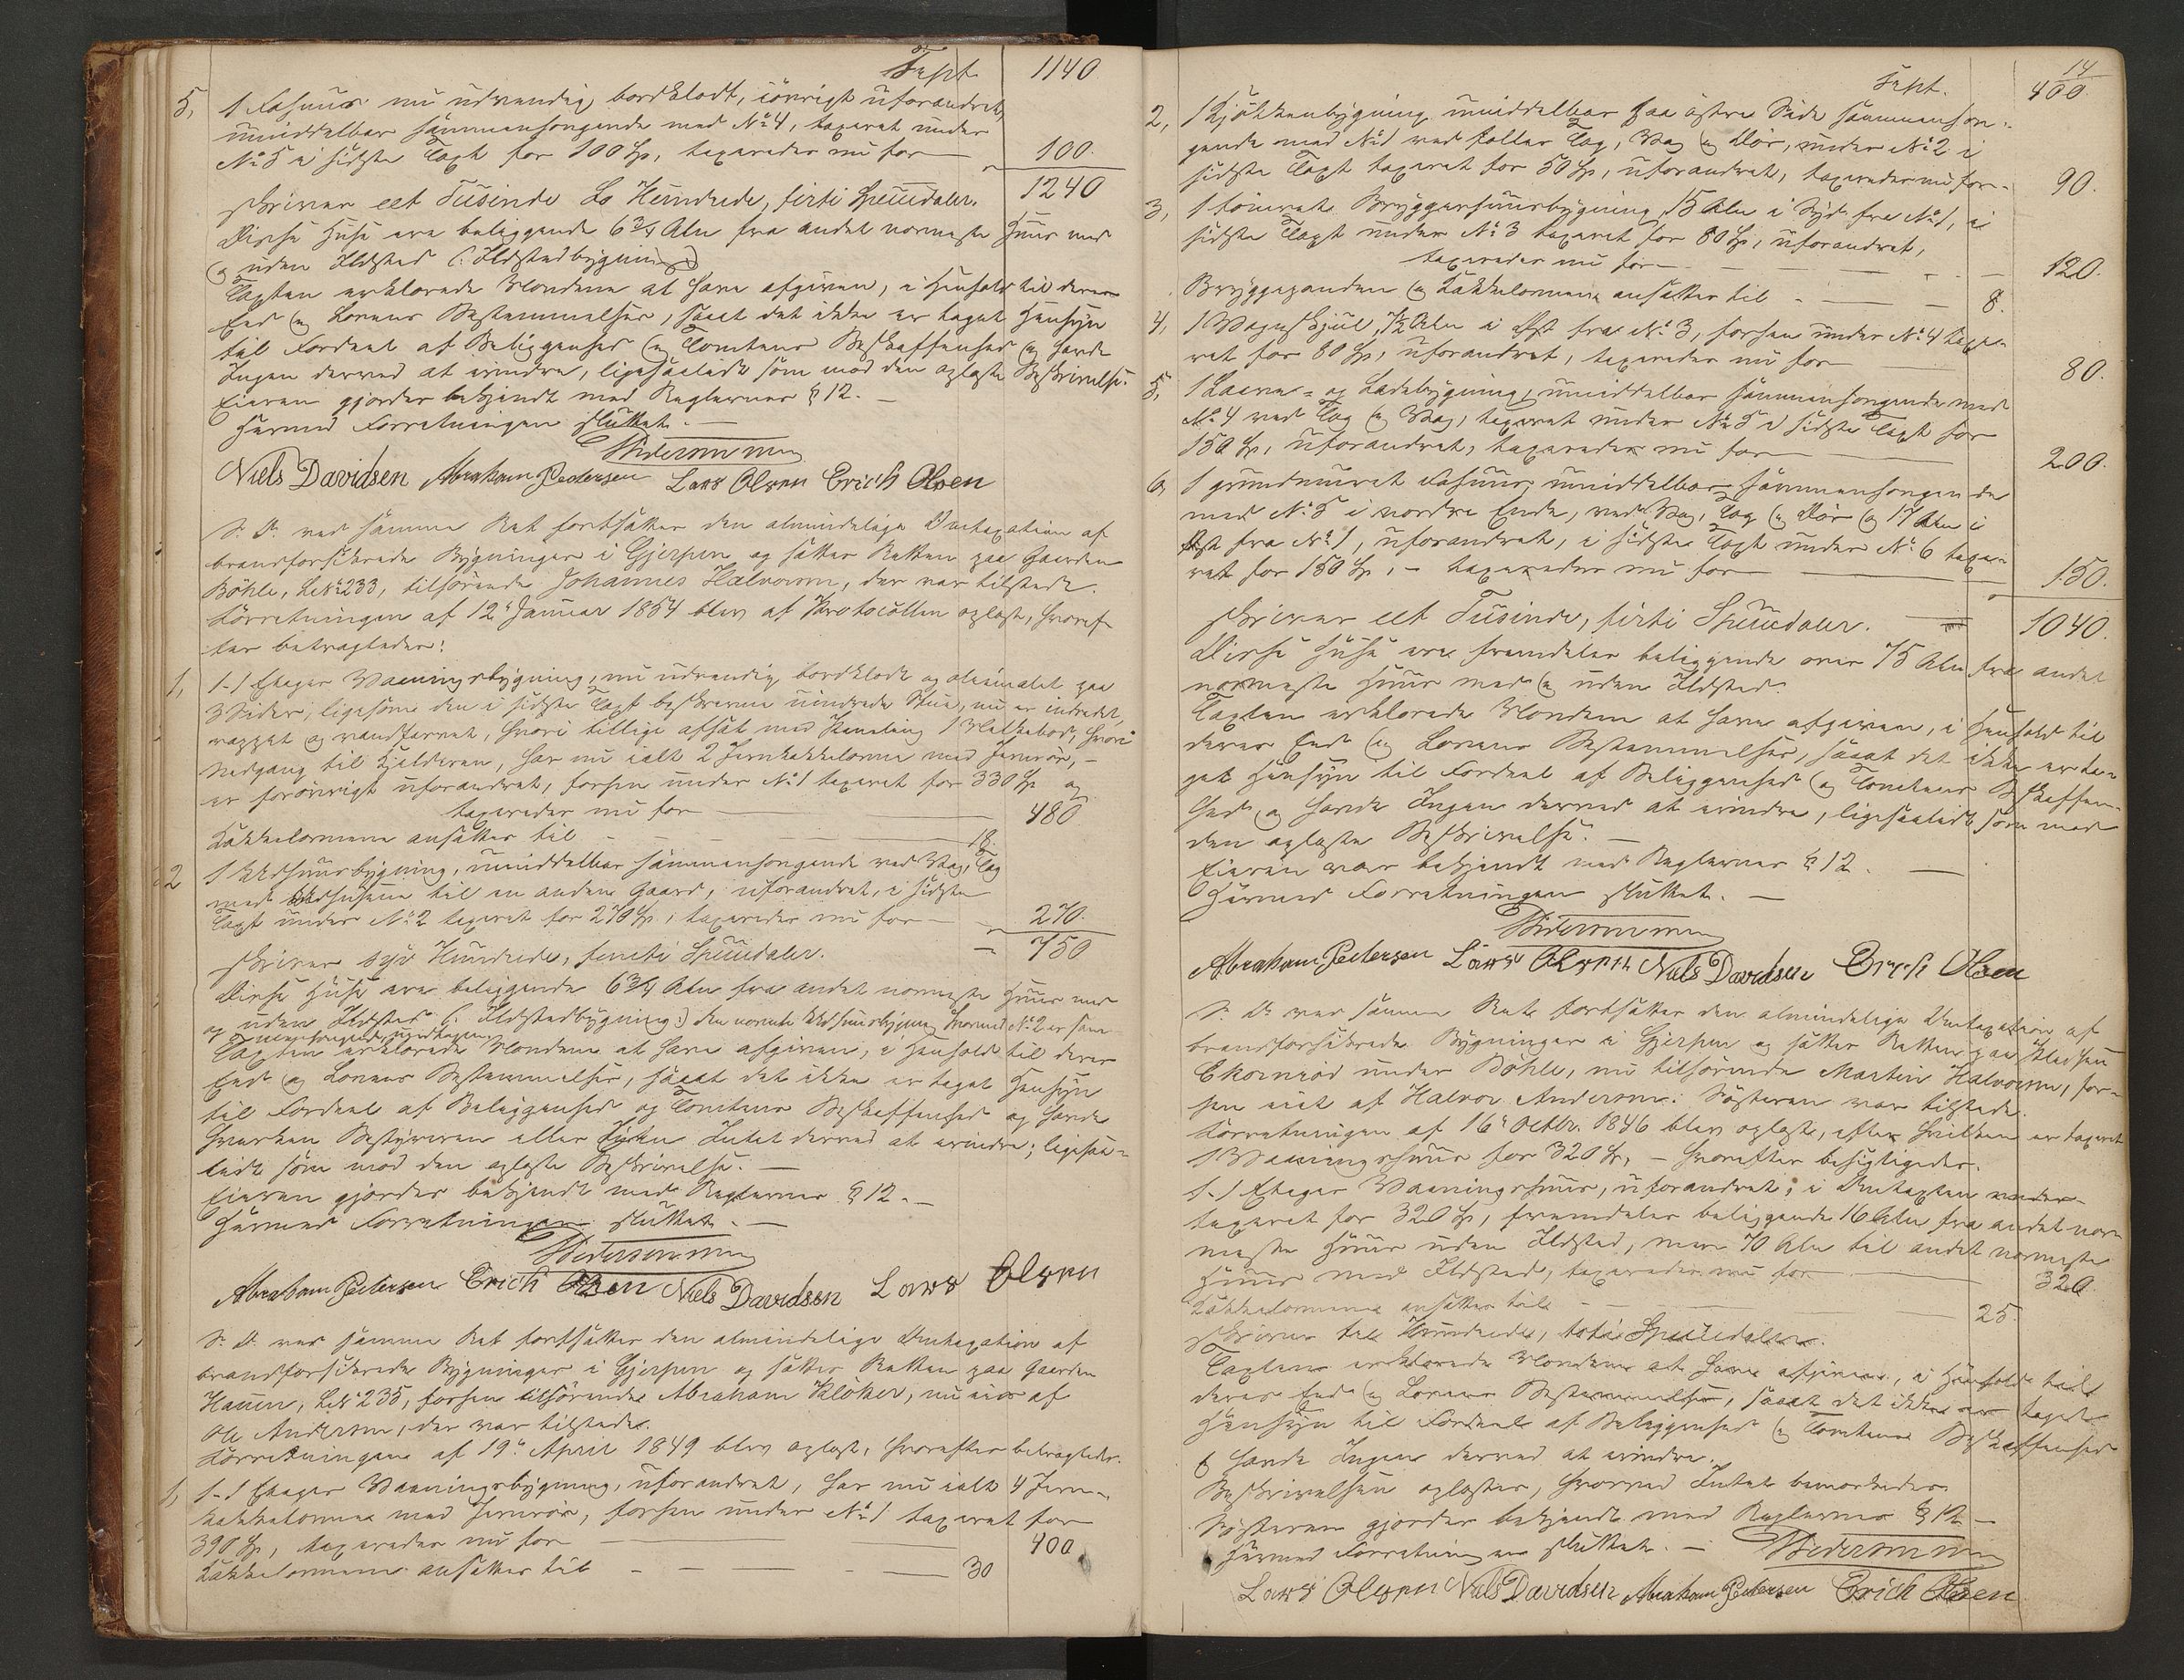 Transp. 1140
5, 1 Fæhuus nu udvendig bordklædt, iøvrigt uforandret,
umiddelbar sammenhængende med No 4, taxeret under
No 5 i sidste Taxt for 100 Sp, taxeredes nu for 100.
skriver eet Tusinde to Hundrede, firti Speciedaler. 1240
Disse Huse ere beliggende 6 3/4 Alen fra andet nærmeste Huus med
og uden Ildsted (: Ildstedbygning :)
Taxten erklærede Mændene at have afgiven, i Henhold til deres
Eed og Lovens Bestemmelser, saaat det ikke er taget Hensyn
til Fordeel af Beliggenhed og Tomtens Beskaffenhed og havde
Ingen derved at erindre, ligesaalidt som mod den oplæste Beskrivelse.
Eieren gjordes bekjendt med Reglernes § 12.
Hermed Forretningen sluttet.
Niels Davidsen Abraham Pedersen Lars Olsen Erich Olsen
S. D. ved samme Ret fortsattes den almindelige Omtaxation af
brandforsikrede Bygninger i Gjerpen og sattes Retten paa Gaarden
Bøhle, L.No 233, tilhørende Johannes Halvorsen, der var tilstede.
Forretningen af 12te Januar 1854 blev af Protocollen oplæst, hvoref-
ter betragtedes:
1, 1-1 Etages Vaaningsbygning, nu udvendig bordklædt og oliemalet paa
3 Sider, ligesom den i sidste Taxt beskrevne uindrede Stue, nu er indredet,
nedgang til Kjelderen, har nu ialt 2 Jernkakkelovne med Jernrør, -
er forøvrigt uforandret, forhen under No 1 taxeret for 330 Sp og
taxeredes nu for 480
Kakkelovnene ansattes til 18.
2 1 Udhuusbygning, umiddelbar sammenhængende ved Væg, Tag
med Udhusene til en anden Gaard, uforandret, i sidste
Taxt under No 2 taxeret for 270 Sp, taxeredes nu for 270.
skriver syv Hundrede, femti Speciedaler. 750
Disse Huse ere beliggende 6 3/4 Alen fra andet nærmeste Huus med
og uden Ildsted (: Ildstedbygning :) den nævnte Udhuusbygning hvormed No 2 er sam-
Taxten erklærede Mændene at have afgiven, i Henhold til deres
Eed og Lovens Bestemmelser, saaat det ikke er taget Hensyn
til Fordeel af Beliggenhed og Tomtens Beskaffenhed og havde
hverken Bestyreren eller Eieren Intet derved at erindre; ligesaa-
lidt som mod den oplæste Beskrivelse.
Eieren gjordes bekjendt med Reglernes § 12.
Hermed Forretningen sluttet.
Abraham Pedersen Erich Olsen Niels Davidsen Lars Olsen
S. D. ved samme Ret fortsattes den almindelige Omtaxation af
brandforsikrede Bygninger i Gjerpen og sattes Retten paa Gaarden
Hauen, L.No 235, forhen tilhørende Abraham Kløcker, nu eies af
Ole Andersen, der var tilstede.
Forretningen af 19de April 1849 blev oplæst, hvorefter betragtedes.
1, 1-1 Etages Vaaningsbygning, uforandret, har nu ialt 4 Jern-
kakkelovne med Jernrør, forhen under No 1 taxeret for
390 Sp, taxeredes nu for 400
Kakkelovnene ansattes til 30
14
Transp. 400.
2, 1 Kjøkkenbygning umiddelbar paa østre Side sammenhæn-
gende med No 1 ved fælles Tag, Væg og Dør, under No 2 i
sidste Taxt taxeret for 50 Sp, uforandret, taxeredes nu for 90.
3, 1 tømret Bryggerhuusbygning 15 Alen i Syd fra No 1, i
sidste Taxt under No 3 taxeret for 80 Sp, uforandret,
taxeredes nu for 120.
Bryggepanden og Kakkelovnene ansattes til 8.
4, 1 Vognskjul, 7 1/2 Alen i Øst fra No 3, forhen under No 4 taxe-
ret for 80 Sp, uforandret, taxeredes nu for 80.
5, 1 Laave- og Ladebygning, umiddelbar sammenhængende med
No 4 ved Tag og Væg, taxeret under No 5 i sidste Taxt for
150 Sp, uforandret, taxeredes nu for 200.
6, 1 grundmuret Fæhuus, umiddelbar sammenhængende
med No 5 i nordre Ende, ved Væg, Tag og Dør og 17 Alen i
Øst fra No 1, uforandret, i sidste Taxt under No 6 taxe-
ret for 150 Sp, - taxeredes nu for 150.
skriver eet Tusinde, firti Speciedaler. 1040.
Disse Huse ere fremdeles beliggende over 75 Alen fra andet
nærmeste Huus med og uden Ildsted.
Taxten erklærede Mændene at have afgiven, i Henhold til
deres Eed og Lovens Bestemmelser, saaat det ikke er ta-
get Hensyn til Fordeel af Beliggenhed og Tomtens Beskaffen-
hed og havde Ingen derved at erindre, ligesaalidt som mod
den oplæste Beskrivelse.
Eieren var bekjendt med Reglernes § 12.
Hermed Forretningen sluttet.
Abraham Pedersen Lars Olsen Niels Davidsen Erich Olsen
S. D. ved samme Ret fortsattes den almindelige Omtaxation af
brandforsikrede Bygninger i Gjerpen og sattes Retten paa Pladsen
Ekornrød under Bøhle, nu tilhørende Martin Halvorsen, for-
hen eiet af Halvor Andersen. Søsteren var tilstede.
Forretningen af 16de Octbr. 1846 blev oplæst, efter hvilken er taxeret
1 Vaaningshuus for 320 Sp, - hvorefter besigtigedes.
1-1 Etages Vaaningshuus, uforandret, i Omtaxten
taxeret for 320 Sp, fremdeles beliggende 16 Alen fra andet nær-
meste Huus uden Ildsted, men 70 Alen til andet nærmeste
Huus med Ildsted, taxeredes nu for 320.
Kakkelovnene ansattes til 25.
skriver tre Hundrede, totie Speciedaler.
Taxten erklærede Mændene at have afgiven, i Henhold til
deres Eed og Lovens Bestemmelser, saaat det ikke er taget
Hensyn til Fordeel af Beliggenhed og Tomtens Beskaffenhed
og havde Ingen derved at erindre.
Beskrivelsen oplæstes, hvorved Intet bemærkedes.
Søsteren gjordes bekjendt med Reglernes § 12
Hermed Forretningen sluttet.
Lars Olsen Niels Davidsen Abraham Pedersen Erich Olsen